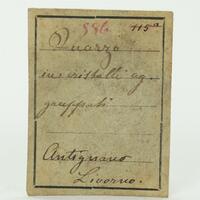 886 115a
Quarzo
in cristalli ag
gruppati
Antignano
Livorno.